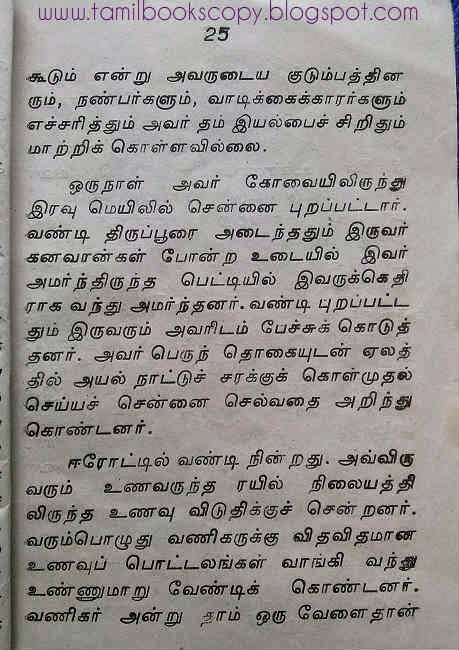 www.tamilbookscopy.blogspot.com
25
கூடும் என்று அவருடைய குடும்பத்தின
ரும், நண்பர்களும், வாடிக்கைக்காரர்களும்
எச்சரித்தும் அவர் தம் இயல்பைச் சிறிதும்
மாற்றிக் கொள்ளவில்லை.
ஒருநாள் அவர் கோவையிலிருந்து
இரவு மெயிலில் சென்னை புறப்பட்டார்.
வண்டி திருப்பூரை அடைந்ததும் இருவர்
கனவான்கள் போன்ற உடையில் இவர்
அமர்ந்திருந்த பெட்டியில் இவருக்கெதி
ராக வந்து அமர்ந்தனர். வண்டி புறப்பட்ட
தும் இருவரும் அவரிடம் பேச்சுக் கொடுத்
தனர். அவர் பெருந் தொகையுடன் ஏலத்
தில் அயல் நாட்டுச் சரக்குக் கொள்முதல்
செய்யச் சென்னை செல்வதை அறிந்து
கொண்டனர்.
ஈரோட்டில் வண்டி நின்றது. அவ்விரு
வரும் உணவருந்த ரயில் நிலையத்தி
லிருந்த உணவு விடுதிக்குச் சென்றனர்.
வரும்பொழுது வணிகருக்கு விதவிதமான
உணவுப் பொட்டலங்கள் வாங்கி வந்து
உண்ணுமாறு வேண்டிக் கொண்டனர்.
வணிகர் அன்று தாம் ஒரு வேளைதான்